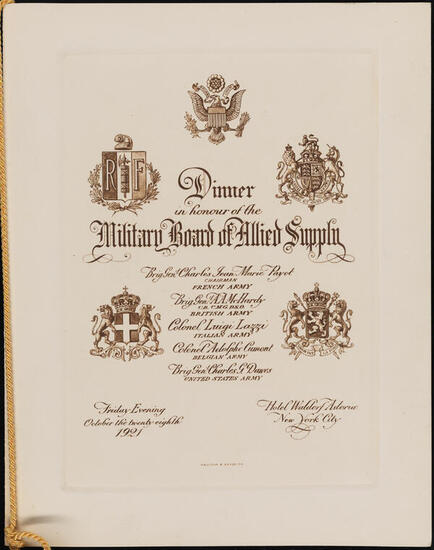 R F
Dinner
in honour of the
Military Board of Allied Supply
Brig. Gen'l Charles Jean Marie Payot
CHAIRMAN
FRENCH ARMY
Brig. Gen'l A.A. McHardy
C.B. C.M.G. D.S.O.
BRITISH ARMY
Colonel Luigi Lazzi
ITALIAN ARMY
Colonel Adolphe Cumont
BELGIAN ARMY
Brig. Gen'l Charles G. Dawes
UNITED STATES ARMY
Friday Evening
October the twenty eighth
1921
Hotel Waldorf Astoria
New York City